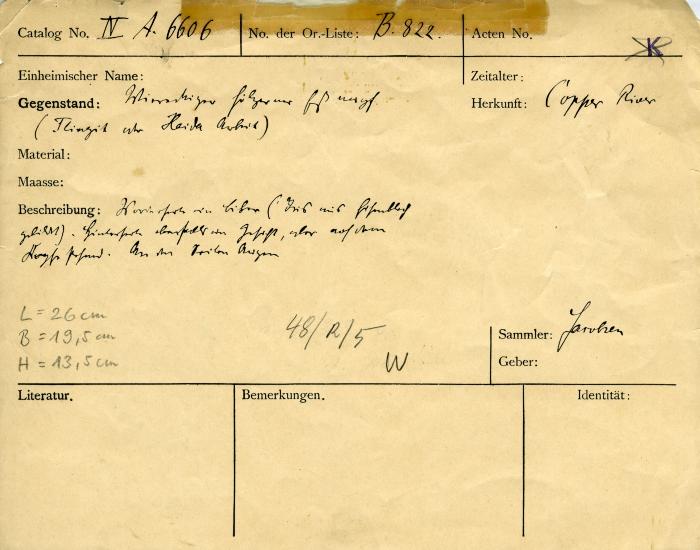 Catalog No. IV A. 6606 No. der Or.-Liste: B. 822. Acten No.
K
Einheimischer Name: Zeitalter:
Gegenstand: Viereckiger hölzerner Eßnapf Herkunft: Copper River
(Tlingit oder Haida Arbeit)
Material:
Maasse:
Beschreibung: Vorderseite ein Biber (
gebildet). Hinterseite ebenfalls ein Gesicht, aber auf dem
Kopfe stehend. An den Seiten Augen
L = 26 cm
B = 19,5 cm
H = 13,5 cm
48/R/5
W
Sammler: Jacobsen
Geber:
Literatur. Bemerkungen. Identität: